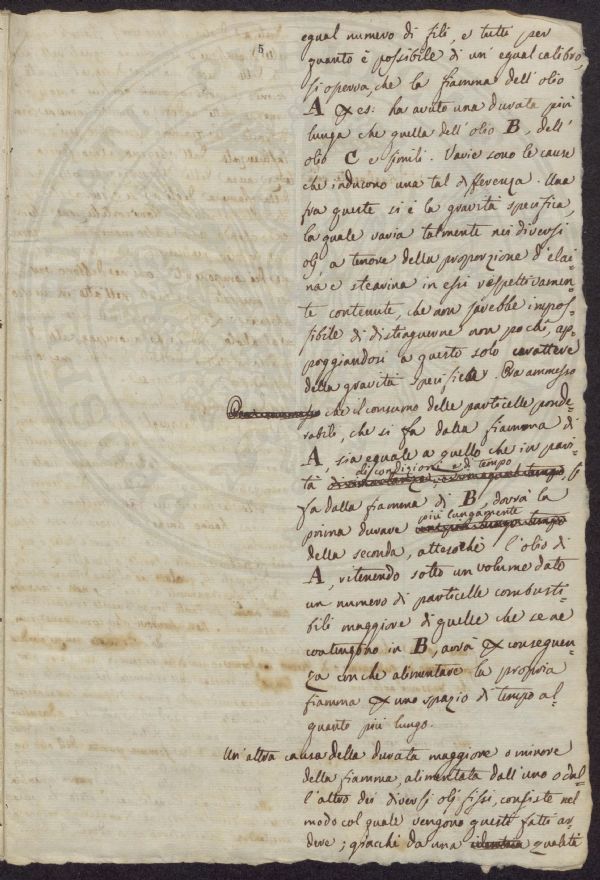 5
egual numero di fili, e tutti per
quanto è possibile di un' egual calibro,
si osserva, che la fiamma dell' olio
A p es: ha avuto una durata più
lunga che quella dell' olio B, dell'
olio C e simili. Varie sono le cause
che inducono una tal differenza. Una
fra queste si è la gravità specifica,
la quale varia talmente nei diversi
olj, a tenore della proporzione d' elai-
na e stearina in essi respettivamen-
te contenute, che non sarebbe impos-
sibile di distinguerne non pochi, ap-
poggiandosi a questo solo carattere
della gravità specifica. Ora ammesso
che il consumo delle particelle ponde-
rabili, che si fa dalla fiamma di
A, sia eguale a quello che in pari-
di condizioni e di tempo
tà
fa dalla fiamma di B, dovrà la
più lungamente
prima durare
della seconda, attesochè l' olio di
A, ritenendo sotto un volume dato
un numero di particelle combusti-
bili maggiore di quelle che se ne
contengono in B, avrà p conseguen-
za con che alimentare la propria
fiamma p uno spazio di tempo al-
quanto più lungo.
Un' altra causa della durata maggiore o minore
della fiamma, alimentata dall' uno o dal-
l' altro dei diversi olj fissi, consiste nel
modo col quale vengono questi fatti ar-
dere; giacchè da una identica qualità